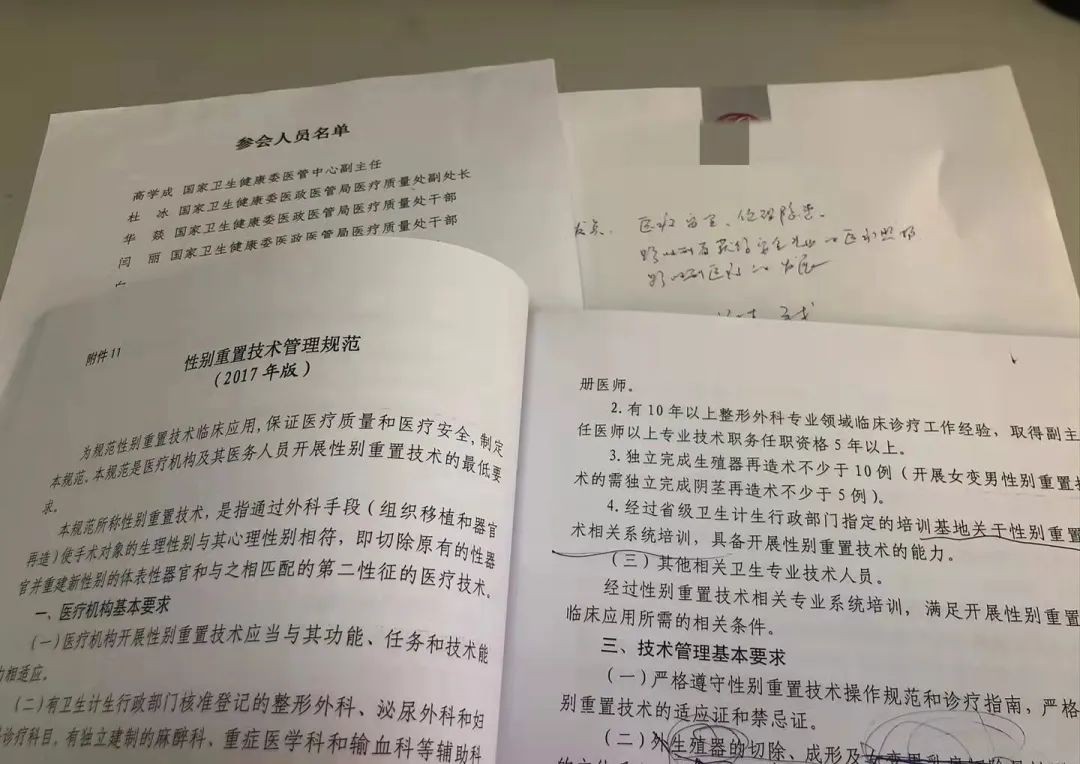 参会人员名单
高学成 国家卫生健康委医管中心副主任
杜 冰 国家卫生健康委医政医管局医疗质量处副处长
华 燚 国家卫生健康委医政医管局医疗质量处干部
闫 丽 国家卫生健康委医政医管局医疗质量处干部
附件11
性别重置技术管理规范
（2017年版）
为规范性别重置技术临床应用，保证医疗质量和医疗安全，制定
本规范。本规范是医疗机构及其医务人员开展性别重置技术的最低要
求。
本规范所称性别重置技术，是指通过外科手段（组织移植和器官
再造）使手术对象的生理性别与其心理性别相符，即切除原有的性器
官并重建新性别的体表性器官和与之相匹配的第二性征的医疗技术。
一、医疗机构基本要求
（一）医疗机构开展性别重置技术应当与其功能、任务和技术能
力相适应。
（二）有卫生计生行政部门核准登记的整形外科、泌尿外科和妇
诊疗科目，有独立建制的麻醉科、重症医学科和输血科等辅助科
册医师。
2.有10年以上整形外科专业领域临床诊疗工作经验，取得副主
任医师以上专业技术职务任职资格5年以上。
3.独立完成生殖器再造术不少于10例（开展女变男性别重置技
术的需独立完成阴茎再造术不少于5例）。
4.经过省级卫生计生行政部门指定的培训基地关于性别重置
术相关系统培训，具备开展性别重置技术的能力。
（三）其他相关卫生专业技术人员。
经过性别重置技术相关专业系统培训，满足开展性别重置
临床应用所需的相关条件。
三、技术管理基本要求
（一）严格遵守性别重置技术操作规范和诊疗指南，严格
别重置技术的适应证和禁忌证。
（二）外生殖器的切除、成形及女变男